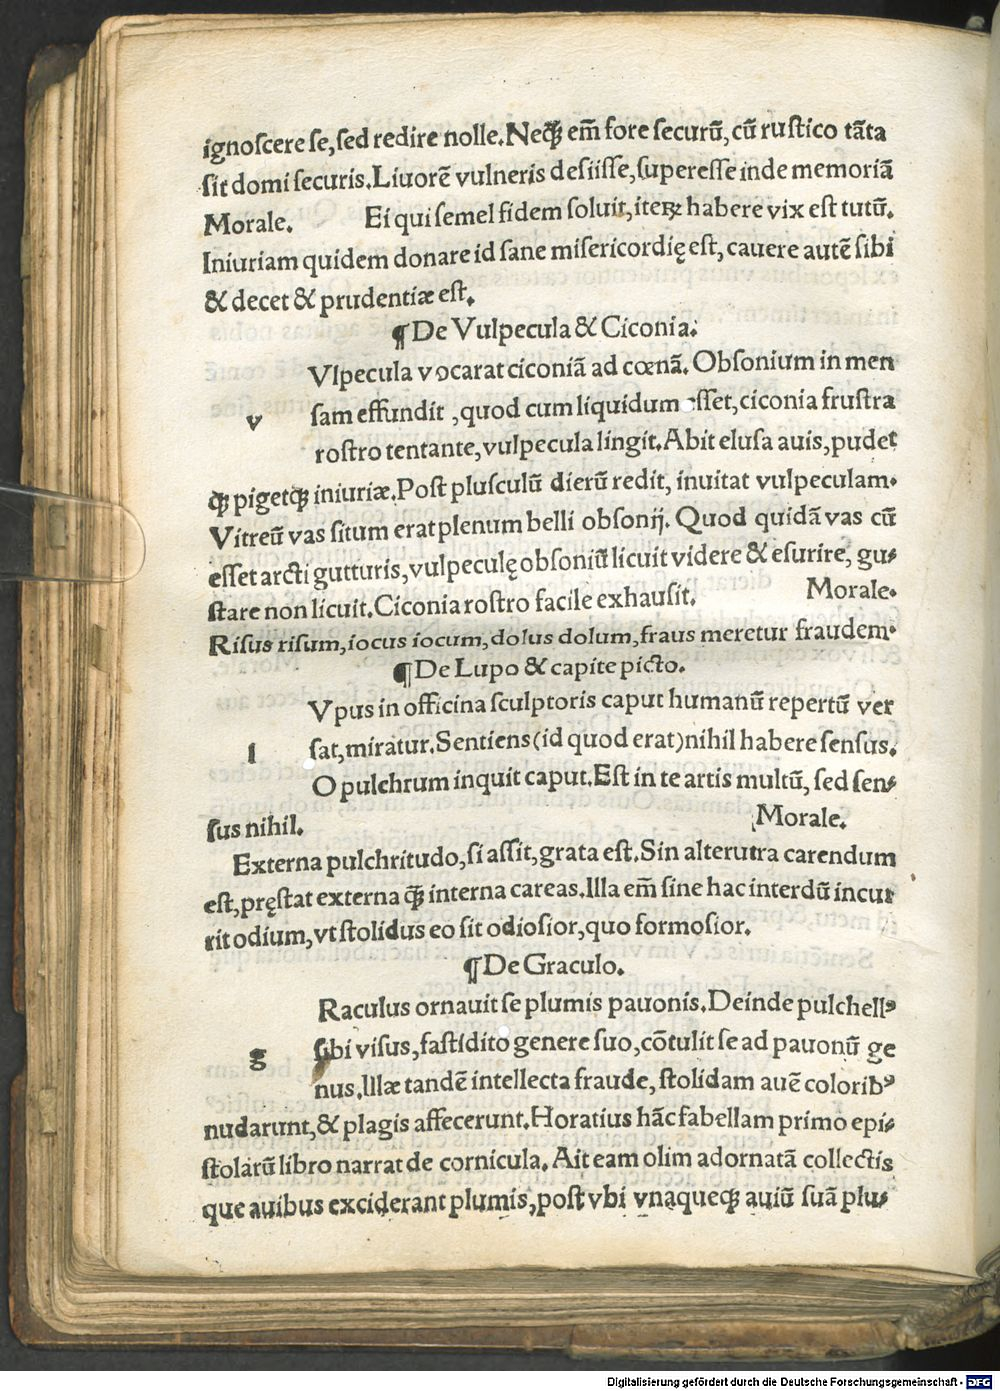 ignoscere se, sed redire nolle. Neqꝫ em̄ fore securū, cū rustico tāta
sit domi securis. Liuorē vulneris desiisse, superesse inde memoriā
Morale. Ei qui semel fidem soluit, iteꝝ habere vix est tutū.
Iniuriam quidem donare id sane misericordię est, cauere autē sibi
& decet & prudentiæ est.
¶ De Vulpecula & Ciconia.
Vlpecula vocarat ciconiā ad cœnā. Obsonium in men
v sam effundit, quod cum liquidum esset, ciconia frustra
rostro tentante, vulpecula lingit. Abit elusa auis, pudet
qꝫ pigetqꝫ iniuriæ. Post plusculū dierū redit, inuitat vulpeculam.
Vitreū vas situm erat plenum belli obsonij. Quod quidā vas cū
esset arcti gutturis, vulpeculę obsoniū licuit videre & esurire, gu-
stare non licuit. Ciconia rostro facile exhausit. Morale.
Risus risum, iocus iocum, dolus dolum, fraus meretur fraudem.
¶ De Lupo & capite picto.
Vpus in officina sculptoris caput humanū repertū ver
l sat, miratur. Sentiens (id quod erat) nihil habere sensus.
O pulchrum inquit caput. Est in te artis multū, sed sen-
sus nihil. Morale.
Externa pulchritudo, si assit, grata est. Sin alterutra carendum
est, pręstat externa qꝫ interna careas. Illa em̄ sine hac interdū incur
rit odium, vt stolidus eo sit odiosior, quo formosior.
¶ De Graculo.
Raculus ornauit se plumis pauonis. Deinde pulchellꝰ
g sibi visus, fastidito genere suo, cōtulit se ad pauonū ge
nus. Illæ tandē intellecta fraude, stolidam auē coloribꝰ
nudarunt, & plagis affecerunt. Horatius hāc fabellam primo epi-
stolarū libro narrat de cornicula. Ait eam olim adornatā collectis
que auibus exciderant plumis, post vbi vnaqueqꝫ auiū suā plu-
Digitalisierung gefördert durch die Deutsche Forschungsgemeinschaft - DFG